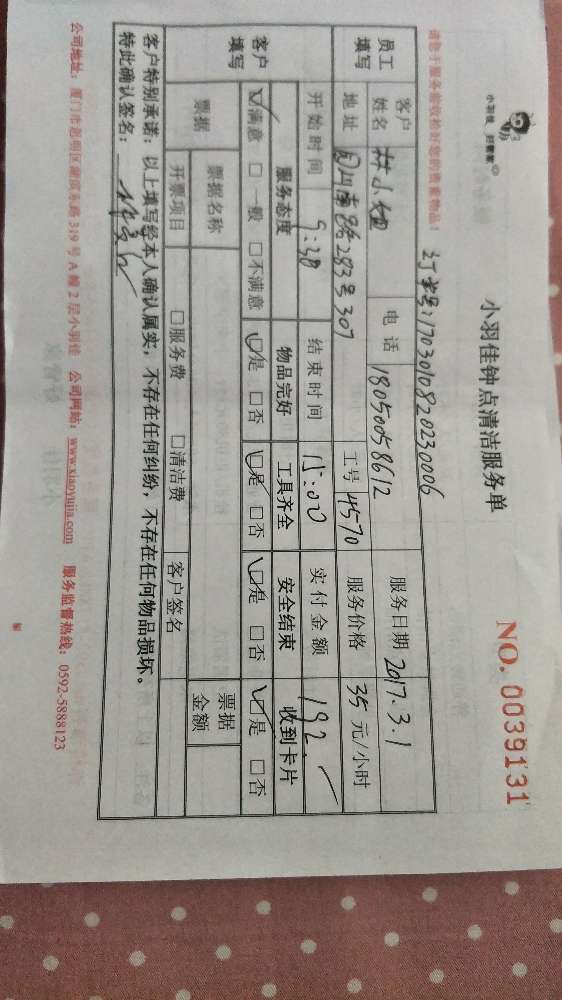 小羽佳 好管家
小羽佳钟点清洁服务单
NO. 0039131
请您于服务前收拾好您的贵重物品!
订单号:1703010820230006
员工填写
客户姓名 林小姐 电话 18050058612 服务日期 2017.3.1
地址 283号307 工号 4570 服务价格 35 元/小时
开始时间 9:30 结束时间 15:00 实付金额 192.
客户填写
服务态度 物品完好 工具齐全 安全结束 收到卡片
☑满意 □一般 □不满意 ☑是 □否 ☑是 □否 ☑是 □否 ☑是 □否
票据 票据名称 票据金额
开票项目 □服务费 □清洁费 客户签名
客户特别承诺:以上填写经本人确认属实,不存在任何纠纷,不存在任何物品损坏。
特此确认签名:
公司地址:厦门市思明区湖滨东路319号A幢2层小羽佳 公司网站:www.xiaoyujia.com 服务监督热线:0592-5888123